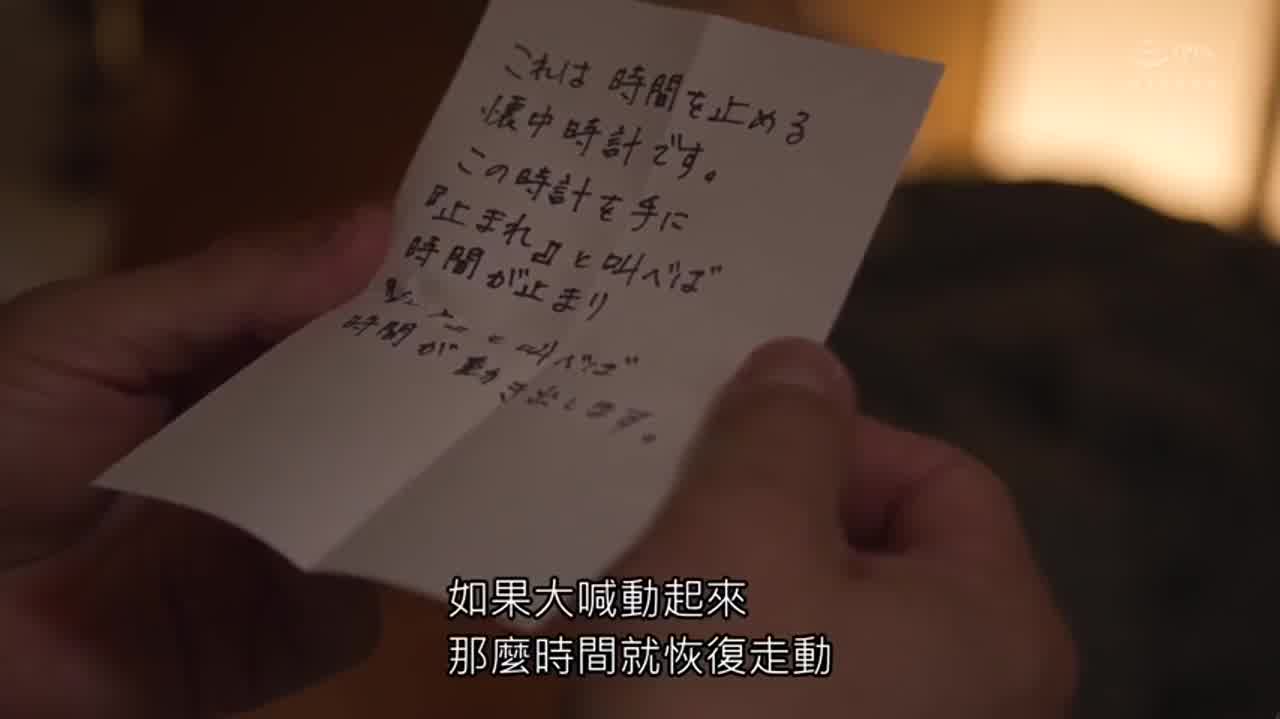 これは時間を止める
懐中時計です。
この時計を手に
『止まれ』と叫べば
時間が止まり
と叫べば
時間が動き出します。
如果大喊動起來
那麼時間就恢復走動